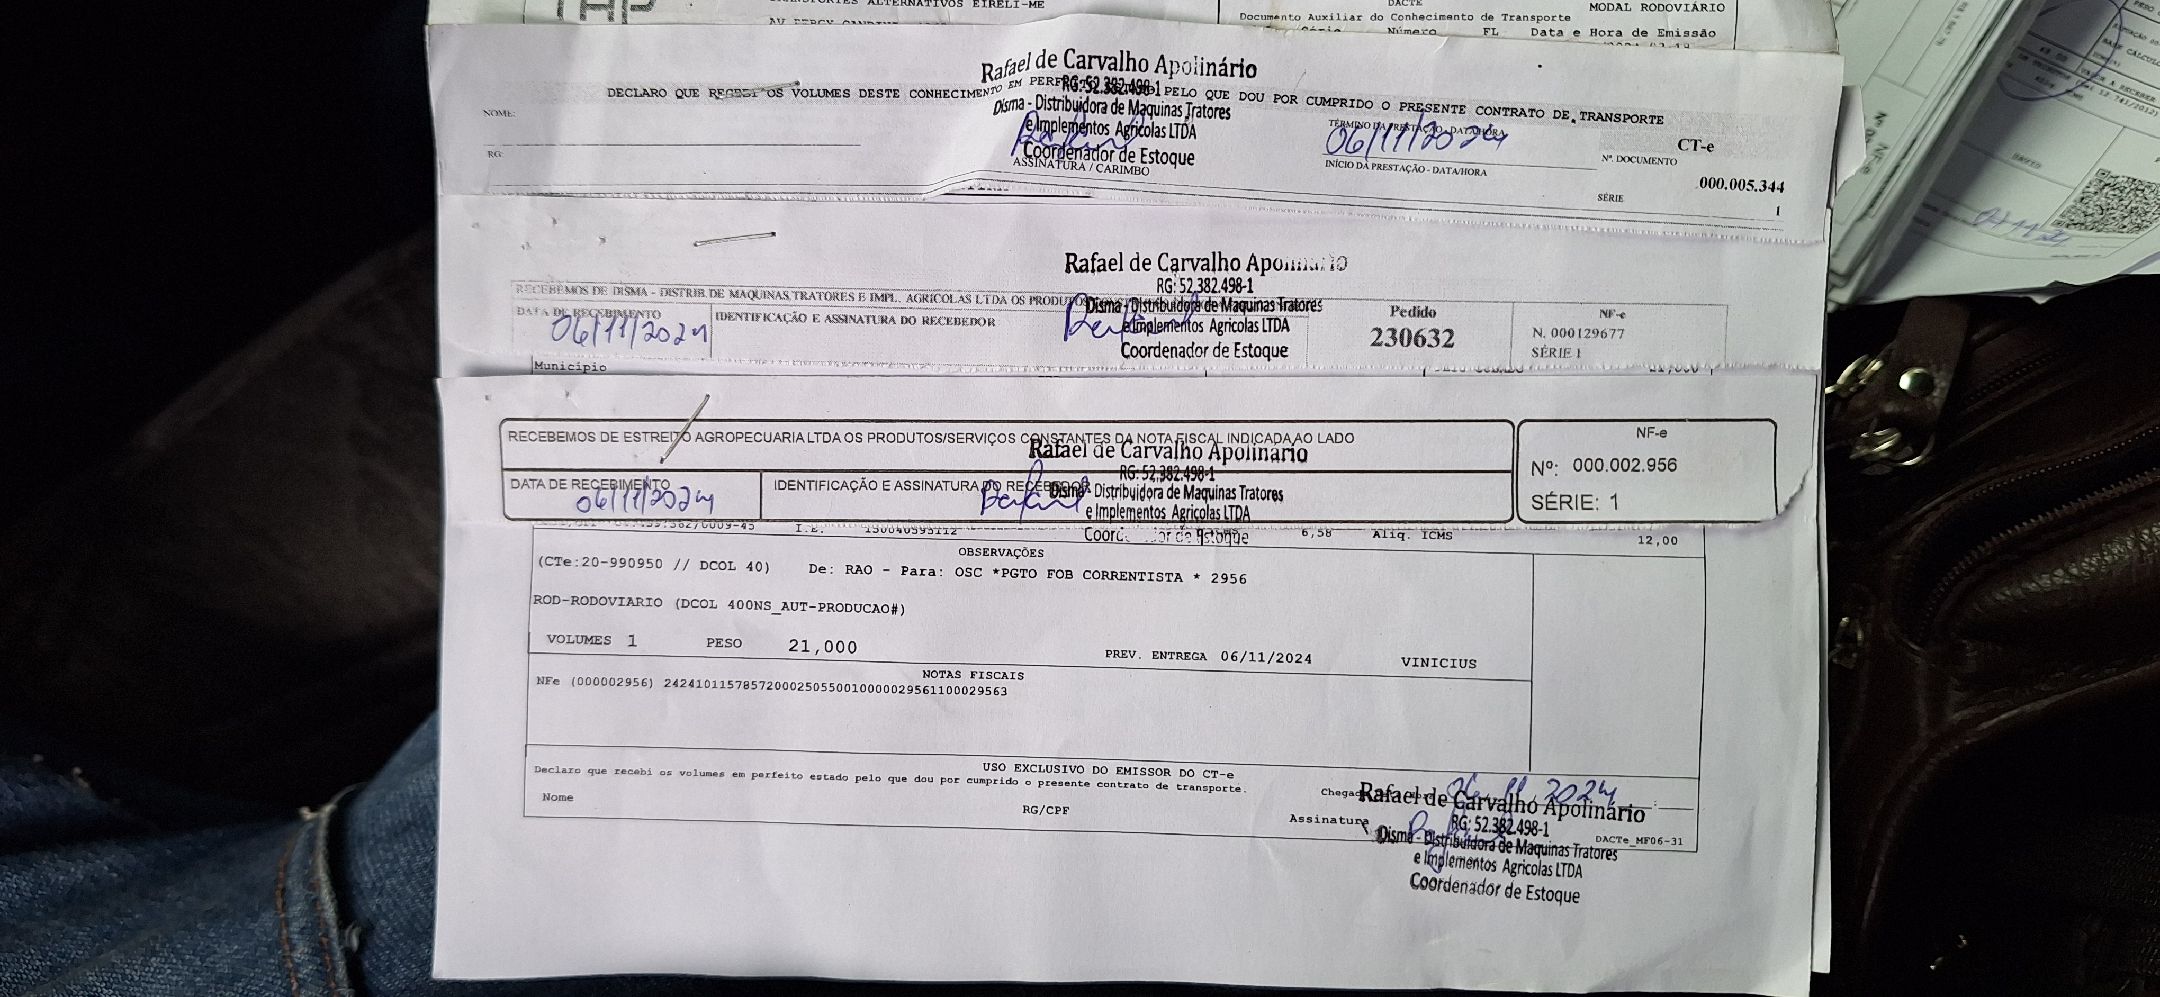 ALTERNATIVOS EIRELI-ME
DACTE
MODAL RODOVIÁRIO
Documento Auxiliar do Conhecimento de Transporte
Número FL Data e Hora de Emissão
Rafael de Carvalho Apolinário
RG: 52.382.498-1
DECLARO QUE RECEBI OS VOLUMES DESTE CONHECIMENTO EM PELO QUE DOU POR CUMPRIDO O PRESENTE CONTRATO DE TRANSPORTE
Disma - Distribuidora de Maquinas Tratores
e Implementos Agricolas LTDA
Coordenador de Estoque
NOME:
RG:
ASSINATURA / CARIMBO
TÉRMINO DA PRESTAÇÃO - DATA/HORA
06/11/2024
INÍCIO DA PRESTAÇÃO - DATA/HORA
CT-e
Nº. DOCUMENTO
000.005.344
SÉRIE
1
Rafael de Carvalho Apolinário
RG: 52.382.498-1
RECEBEMOS DE DISMA - DISTRIB DE MAQUINAS,TRATORES E IMPL. AGRICOLAS LTDA OS PRODUTOS
Disma - Distribuidora de Maquinas Tratores
e Implementos Agricolas LTDA
Coordenador de Estoque
DATA DE RECEBIMENTO
06/11/2024
IDENTIFICAÇÃO E ASSINATURA DO RECEBEDOR
Pedido
230632
NF-e
N. 000129677
SÉRIE 1
Município
RECEBEMOS DE ESTREITO AGROPECUARIA LTDA OS PRODUTOS/SERVIÇOS CONSTANTES DA NOTA FISCAL INDICADA AO LADO
Rafael de Carvalho Apolinário
RG: 52.382.498-1
Disma - Distribuidora de Maquinas Tratores
e Implementos Agricolas LTDA
Coordenador de Estoque
DATA DE RECEBIMENTO
06/11/2024
IDENTIFICAÇÃO E ASSINATURA DO RECEBEDOR
NF-e
Nº: 000.002.956
SÉRIE: 1
I.E. 150040593112
6,58 Aliq. ICMS 12,00
OBSERVAÇÕES
(CTe:20-990950 // DCOL 40) De: RAO - Para: OSC *PGTO FOB CORRENTISTA * 2956
ROD-RODOVIARIO (DCOL 400NS_AUT-PRODUCAO#)
VOLUMES 1 PESO 21,000 PREV. ENTREGA 06/11/2024 VINICIUS
NOTAS FISCAIS
NFe (000002956) 24241011578572000250550010000029561100029563
USO EXCLUSIVO DO EMISSOR DO CT-e
Declaro que recebi os volumes em perfeito estado pelo que dou por cumprido o presente contrato de transporte.
Nome
RG/CPF
Assinatura
Rafael de Carvalho Apolinário
RG: 52.382.498-1
Disma - Distribuidora de Maquinas Tratores
e Implementos Agricolas LTDA
Coordenador de Estoque
DACTe_MF06-31